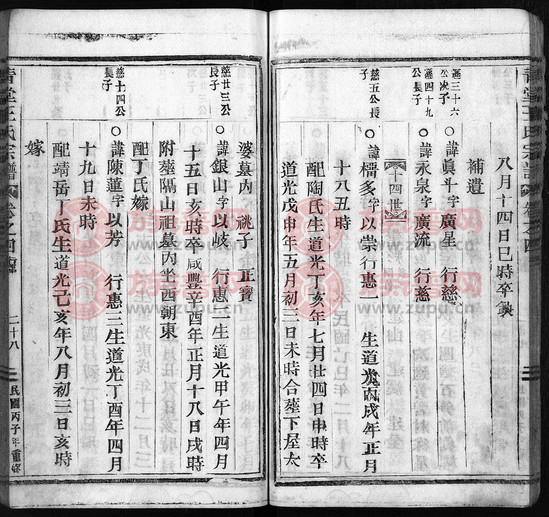 八月十四日巳時卒
補遺
燕三十六公次子
○諱眞斗字廣星 行慈
燕四十九公長子
○諱永泉字廣流 行慈
十四世
慈五公長子
○諱檑多字以崇行惠一 生道光丙戌年正月
十八五時
配陶氏生道光丁亥年七月廿四日申時卒
道光戊申年五月初三日未時合塟下屋太
婆墓内 祧子 正寳
慈廿三公長子
○諱銀山字以岐 行惠二生道光甲午年四月
十五日亥時卒咸豐辛酉年正月十八日戌時
附塟隔山祖墓内坐西朝東
配丁氏嫁
慈十四公長子
○諱陳蓮字以芳 行惠三生道光丁酉年四月
十九日未時
配靖岳丁氏生道光己亥年八月初三日亥時
嫁
青堂王氏宗譜
卷之四
二十八
民國丙子年重修
族谱网
www.zupu.cn